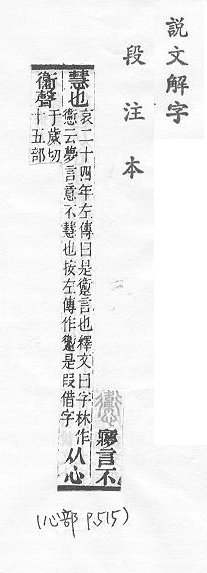 說文解字
段注本
㝱言不
慧也
哀二十四年左傳曰是躛言也釋文曰字林作
𢥠云夢言意不慧也按左傳作躛是叚借字
从心
衞聲
于歲切
十五部
(心部 P.515)